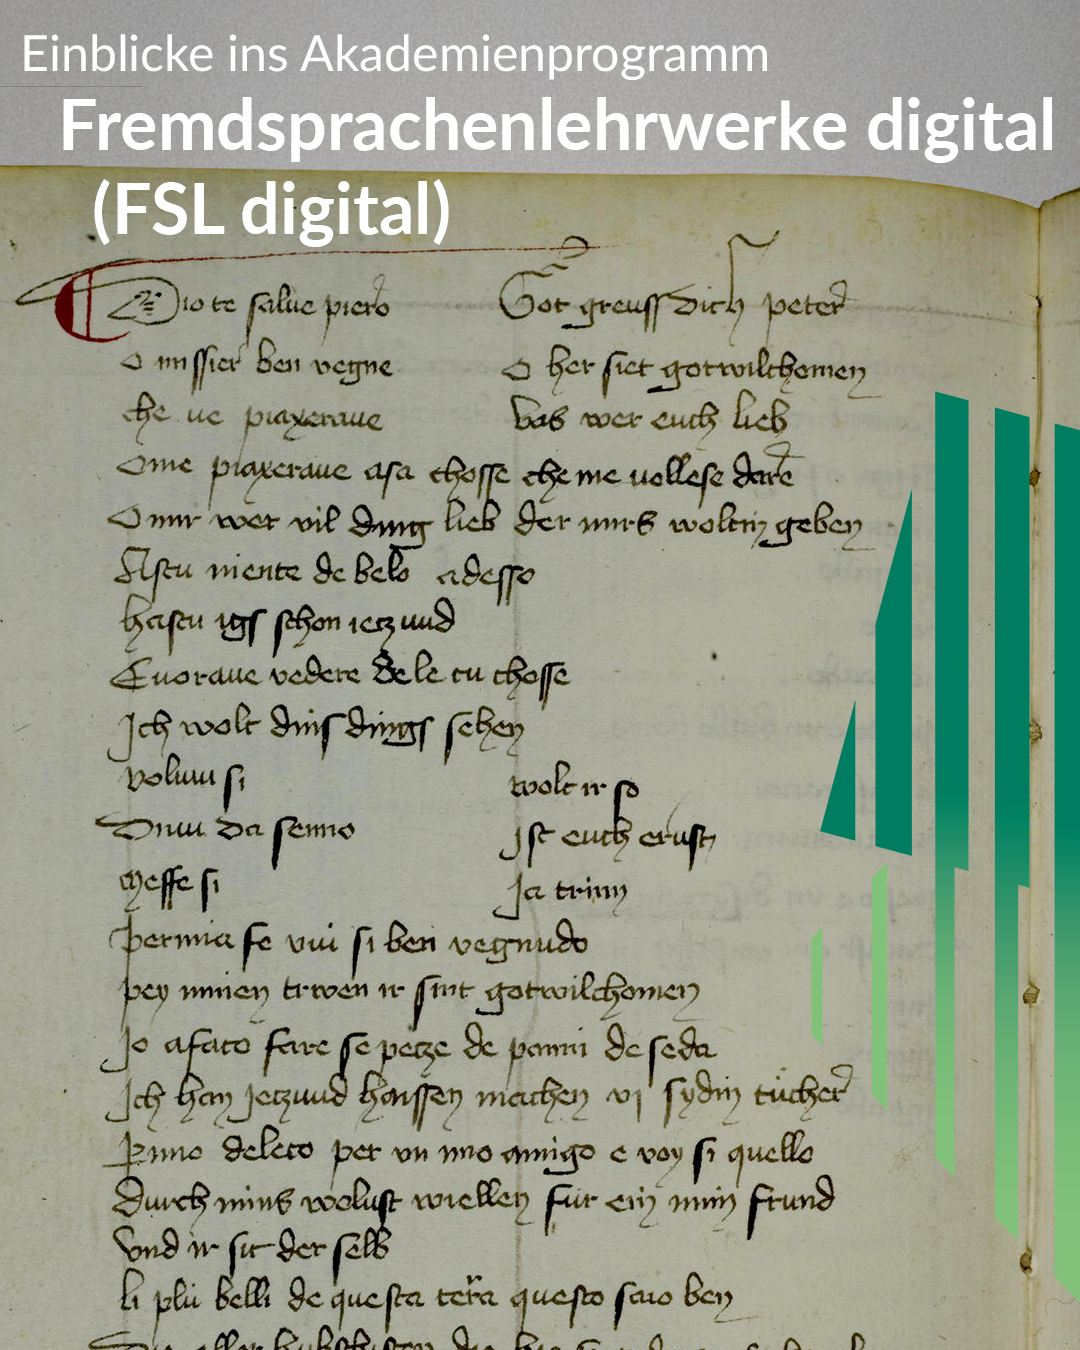 Einblicke ins Akademienprogramm
Fremdsprachenlehrwerke digital
(FSL digital)
Dio te salue piero Got greuss dich peter
O missier ben vegne O her siet gotwilchomen
che ue piaxeraue Vas wer euch lieb
O me piaxeraue asa chosse che me uollese dare
O mir wer vil ding lieb der mirs woltn geben
Astu niente de belo adesso
hastu igs schon ieczund
Euoraue vedere de le tu chosse
Ich wolt dins dings sehen
voliuu si wolt ir so
Diuu da senno Ist euch ernst
Messe si Ja trinn
Per mia fe vui si ben vegnudo
pey minen trwen ir sint gotwilchomen
Io afato fare se pecze de panni de seda
Ich han Jeczund haissen machen vi sydin tücher
Per mio deleto per un mio amigo e voy si quello
Durch mins wolust wiellen für ein min frund
Vnd ir sit der selb
li plu belli de questa tera questo saio ben